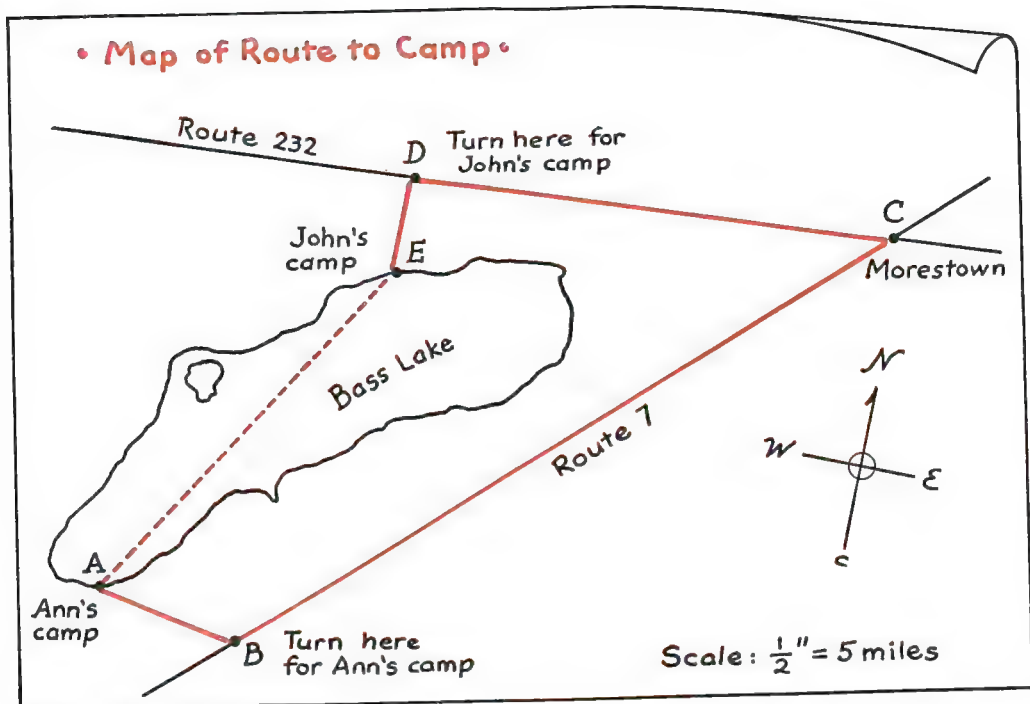 • Map of Route to Camp •
Route 232
D
Turn here for
John's camp
C
Morestown
John's
camp
E
Bass Lake
Route 7
N
W
E
A
Ann's
camp
B
Turn here
for Ann's camp
Scale: 1/2" = 5 miles